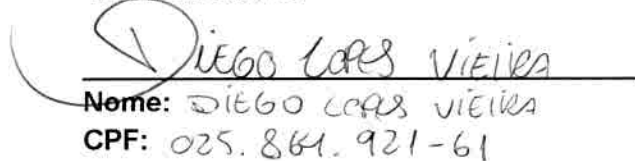 DIEGO LOPES VIEIRA
Nome: DIEGO LOPES VIEIRA
CPF: 025.861.921-61